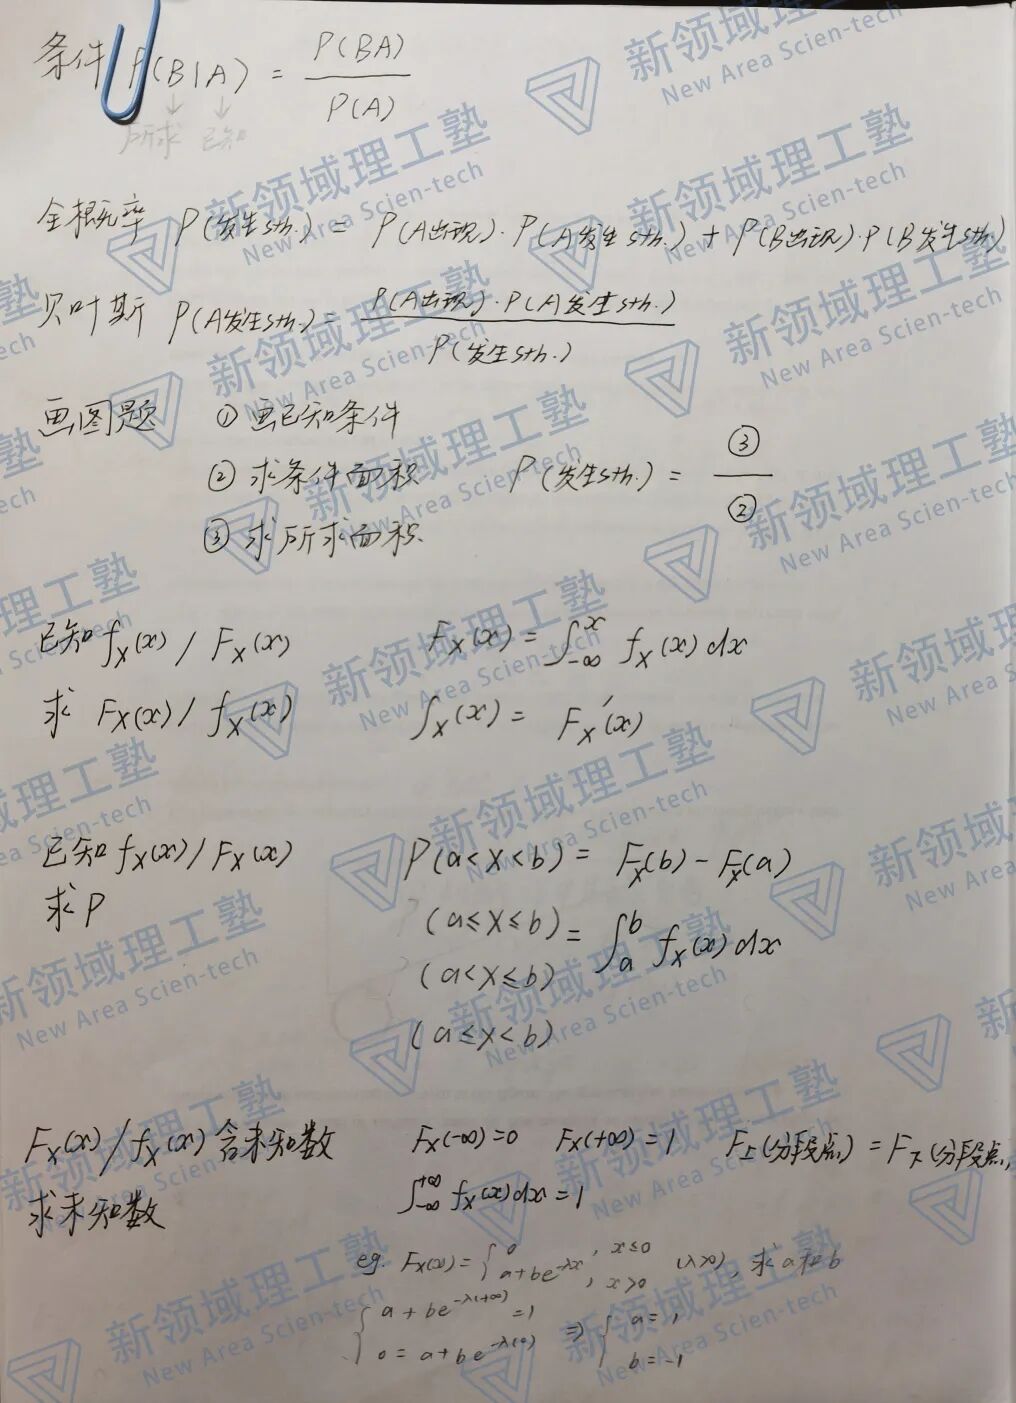 条件 P(B|A) = P(BA) / P(A)
所求 已知
全概率 P(发生sth.) = P(A出现)·P(A发生sth.) + P(B出现)·P(B发生sth.)
贝叶斯 P(A发生sth.) = P(A出现)·P(A发生sth.) / P(发生sth.)
画图题 ① 画已知条件
② 求条件面积 P(发生sth.) = ③ / ②
③ 求所求面积
已知 fX(x) / FX(x) FX(x) = ∫_{-∞}^{x} fX(x) dx
求 FX(x) / fX(x) fX(x) = FX′(x)
已知 fX(x) / FX(x) P(a<X<b) = FX(b) - FX(a)
求P
(a≤X≤b) = ∫_a^b fX(x) dx
(a<X≤b)
(a≤X<b)
FX(x) / fX(x) 含未知数 FX(-∞)=0 FX(+∞)=1 F上(分段点) = F下(分段点)
求未知数 ∫_{-∞}^{+∞} fX(x)dx = 1
eg. FX(x) = { 0, x≤0
a+be^{-λx}, x>0 (λ>0), 求a和b
{ a+be^{-λ(+∞)} = 1 ⇒ { a=1
0 = a+be^{-λ(0)} b=-1
新领域理工塾
New Area Scien-tech